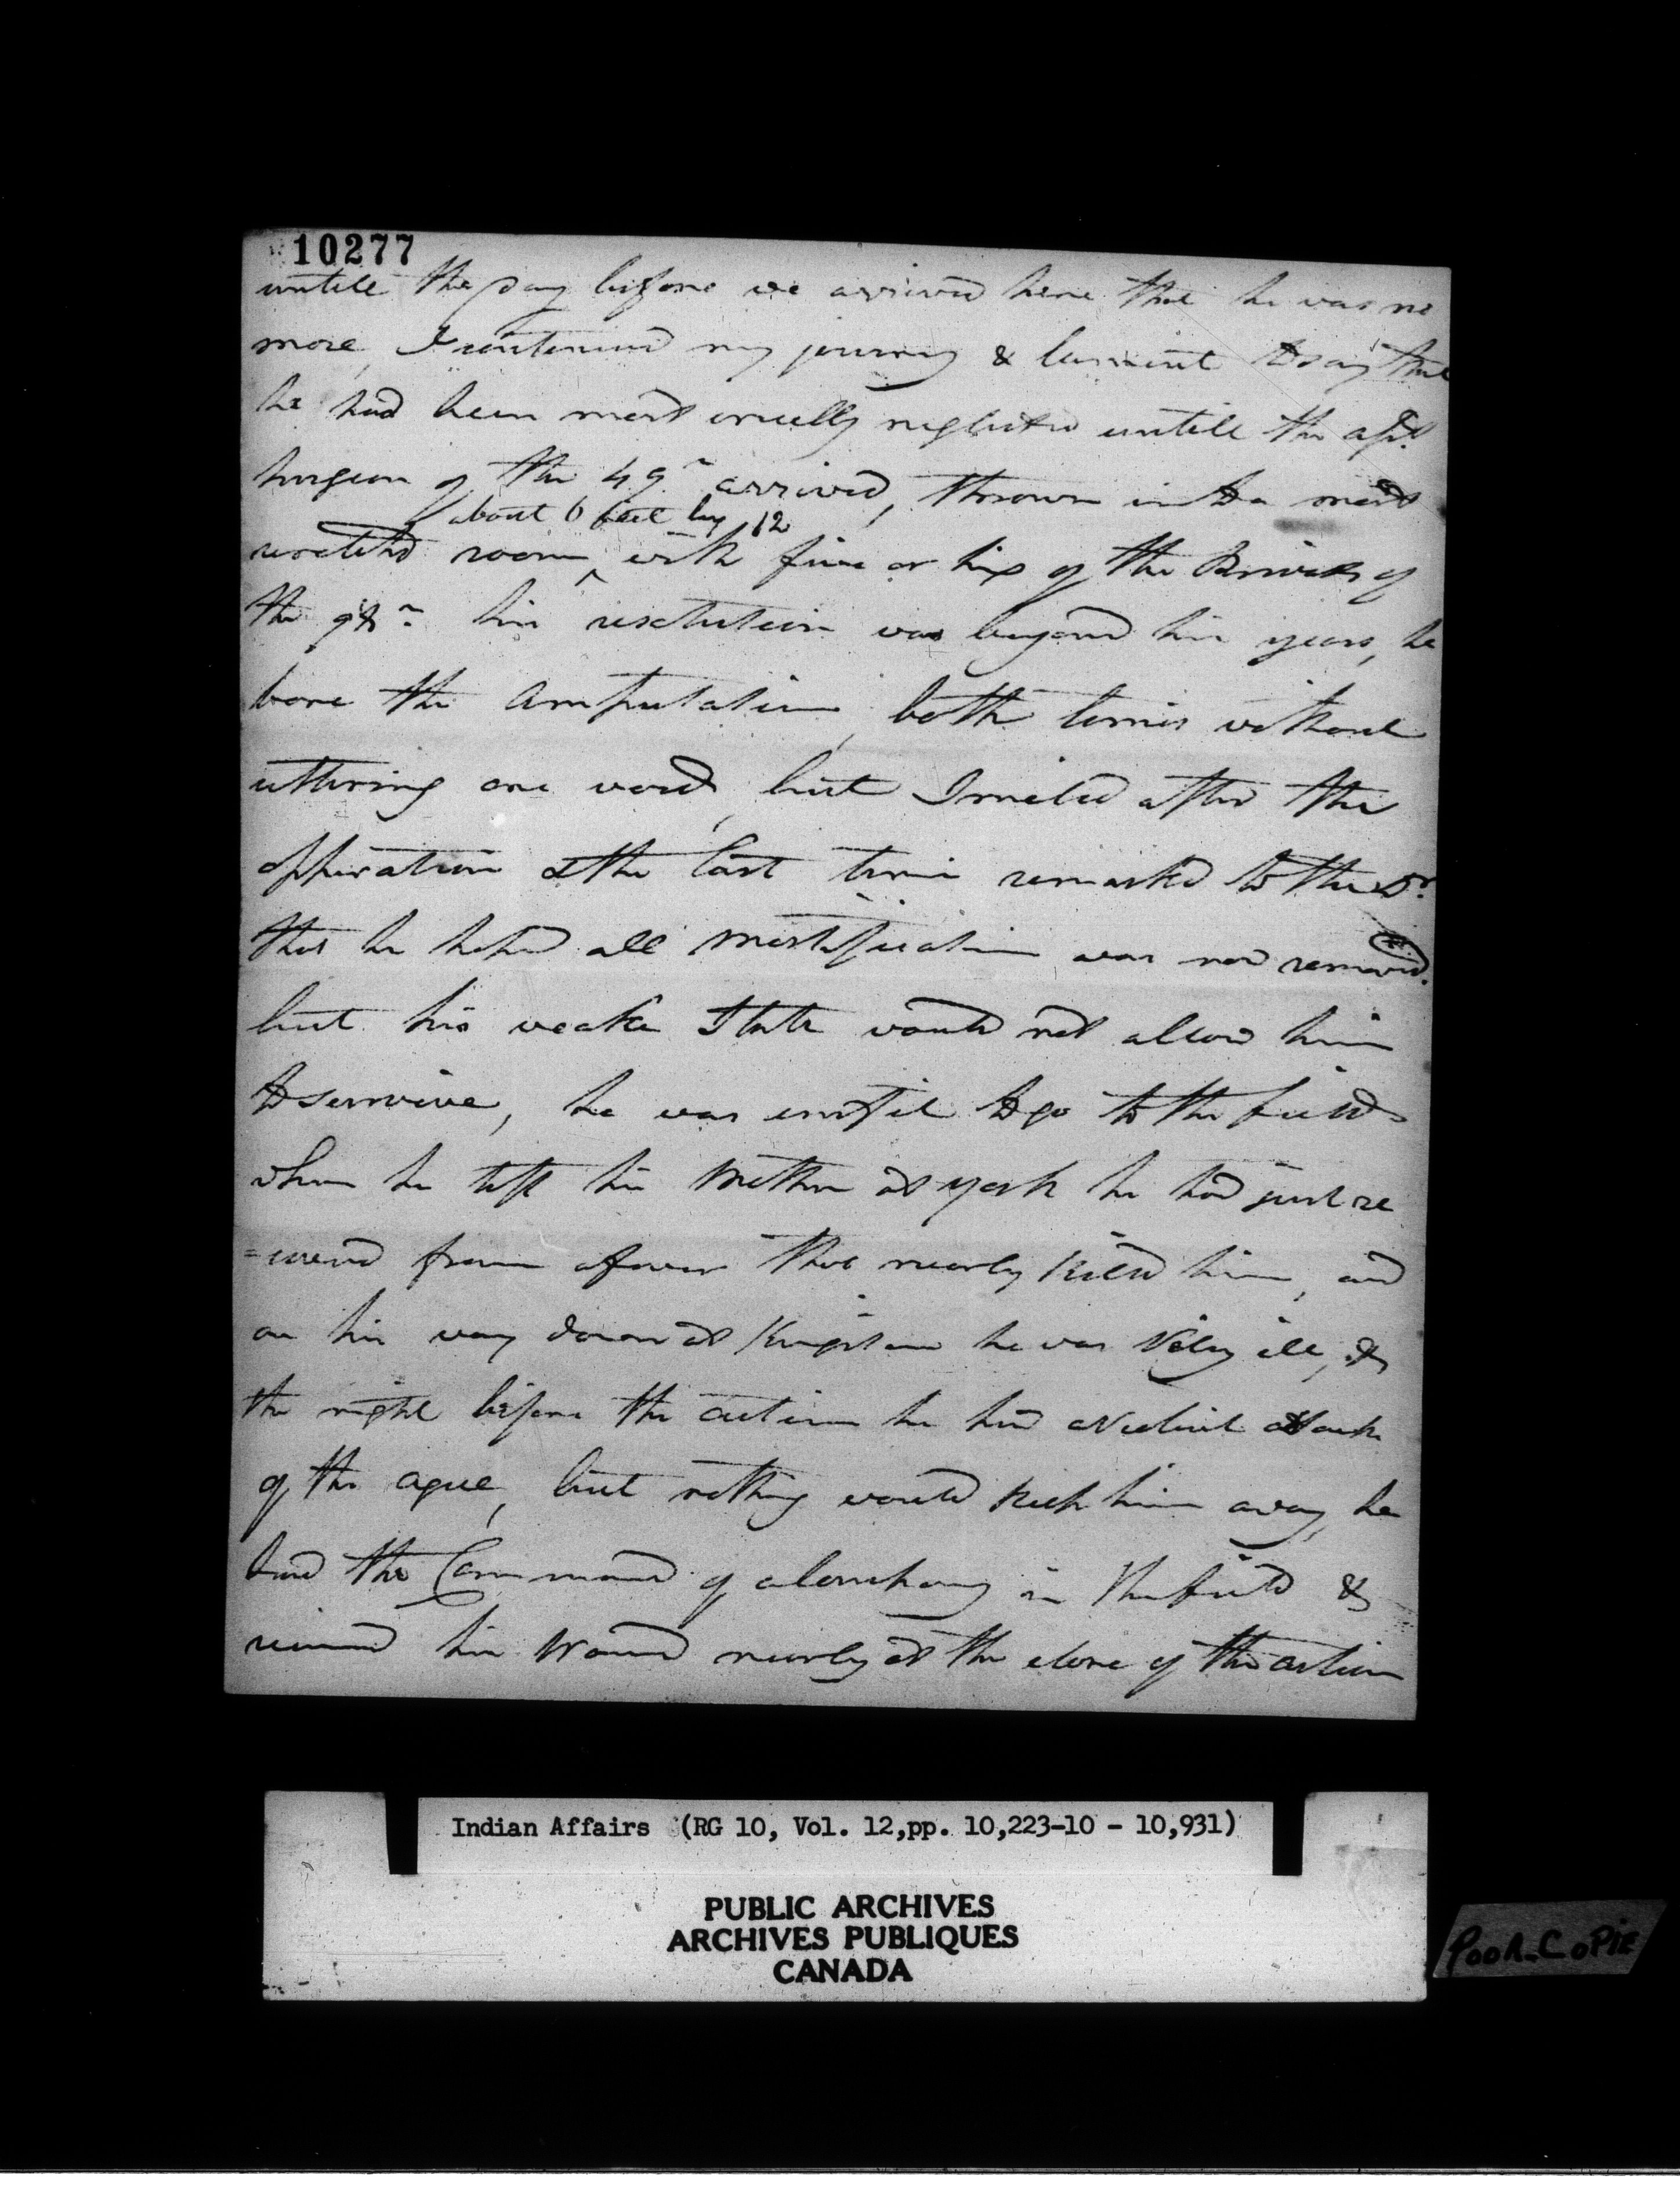 10277
untill the day before we arrived here that he was no
more, I continued my journey & lament to say that
he had been most cruelly neglected untill the asst.
surgeon of the 49th arrived, thrown into a most
about 6 feet by 12
wretched room with five or six of the Privates of
the his resolution was beyond his years, he
bore the amputation, both times without
uttering one word, but smiled after the
opperation & the last time remarked to the Dr.
that he hoped all mortification was now removed.
but his weake state would not allow him
to survive, he was unfit to go to the field
when he left his Mother at York he had just re
=covered from a fever that nearly killed him, and
on his way down at Kingston he was very ill, &
the night before the action he had a violent attack
of the ague, but nothing would keep him away, he
had the Command of a company in the field &
received his wound nearly at the close of the action
Indian Affairs (RG 10, Vol. 12,pp. 10,223-10 - 10,931)
PUBLIC ARCHIVES
ARCHIVES PUBLIQUES
CANADA
POOR COPIE